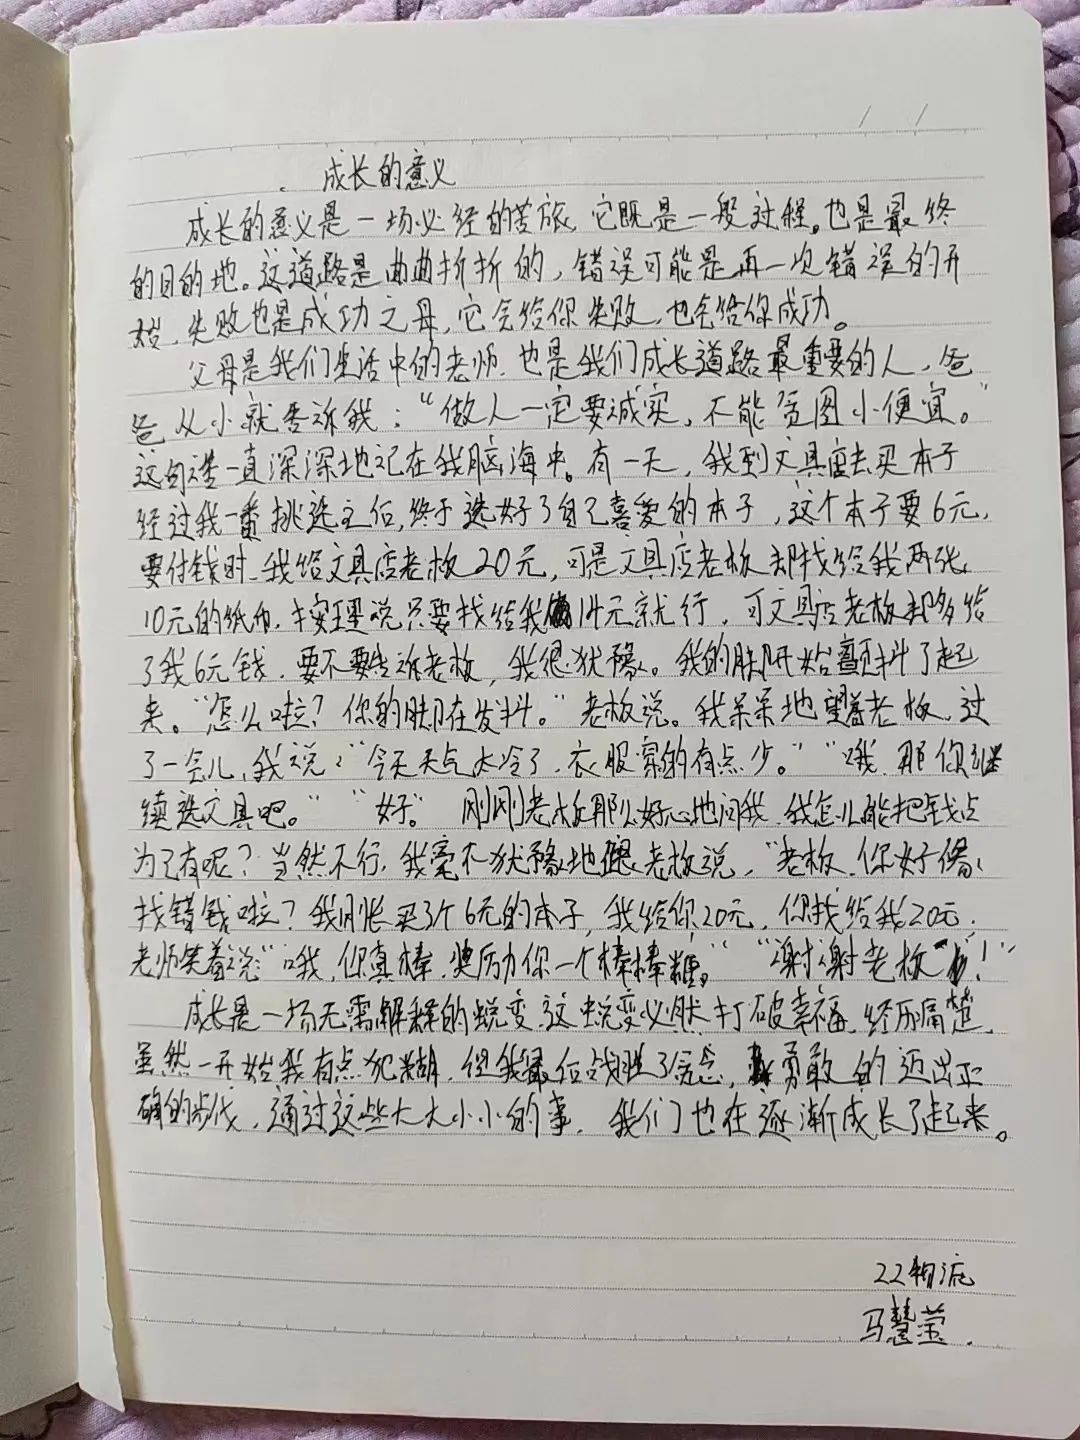 成长的意义
成长的意义是一场必经的苦旅,它既是一段过程。也是最终
的目的地。这道路是曲曲折折的,错误可能是再一次错误的开
始,失败也是成功之母,它会给你失败,也会给你成功。
父母是我们生活中的老师,也是我们成长道路最重要的人,爸
爸从小就告诉我:“做人一定要诚实,不能贪图小便宜。”
这句话一直深深地记在我脑海中。有一天,我到文具店去买本子
经过我一番挑选之后,终于选好了自己喜爱的本子,这个本子要6元,
要付钱时,我给文具店老板20元,可是文具店老板却找给我两张
10元的纸币,按理说只要找给我14元就行,可文具店老板却多给
了我6元钱,要不要告诉老板,我很犹豫。我的脚开始颤抖了起
来。“怎么啦?你的脚在发抖。”老板说。我呆呆地望着老板,过
了一会儿,我说:“今天天气太冷了,衣服穿的有点少。”“哦,那你继
续选文具吧。”“好。”刚刚老板那么好心地问我,我怎么能把钱占
为己有呢?当然不行,我毫不犹豫地跟老板说,“老板,你好像
找错钱啦?我刚买了个6元的本子,我给你20元,你找给我20元,
老师笑着说“哦,你真棒,奖励你一个棒棒糖。”“谢谢老板!”
成长是一场无需解释的蜕变,这蜕变必然打破幸福,经历痛楚,
虽然一开始我有点犯糊,但我最后战胜了贪念,勇敢的迈出正
确的步伐,通过这些大大小小的事,我们也在逐渐成长了起来。
22物流
马慧莹